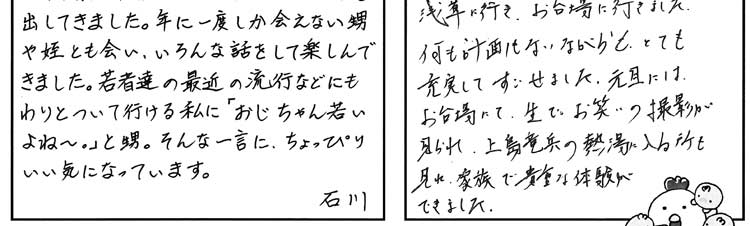 出してきました。年に一度しか会えない甥
や姪とも会い、いろんな話をして楽しんで
きました。若者達の最近の流行などにも
わりとついて行ける私に「おじちゃん若い
よね〜。」と甥。そんな一言に、ちょっぴり
いい気になっています。
石川
浅草に行き、お台場に行きました。
何も計画はないながらも、とても
充実してすごせました。元旦には、
お台場にて、生でお笑いの撮影が
見られ、上島竜兵の熱湯に入る所も
見れ、家族で貴重な体験が
できました。